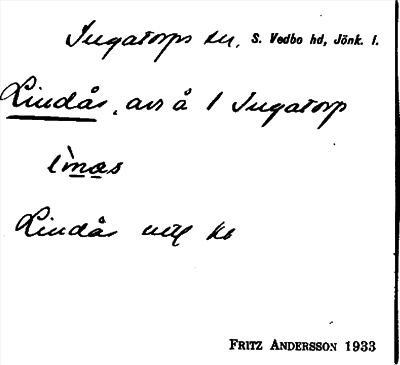 Ingatorps sn. S. Vedbo hd, Jönk. l.
Lindås, avs å 1 Ingatorp
Lindås utt kb
FRITZ ANDERSSON 1933